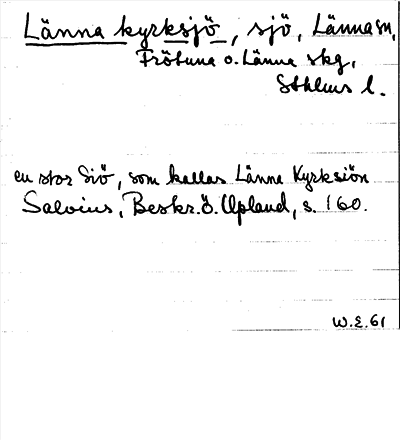 Länna kyrksjö, sjö, Länna sn,
Frötuna o. Länna skg,
Sthlms l.
en stor Siö, som kallas Länne Kyrksiön
Salvius, Beskr. ö. Upland, s. 160.
W.E. 61